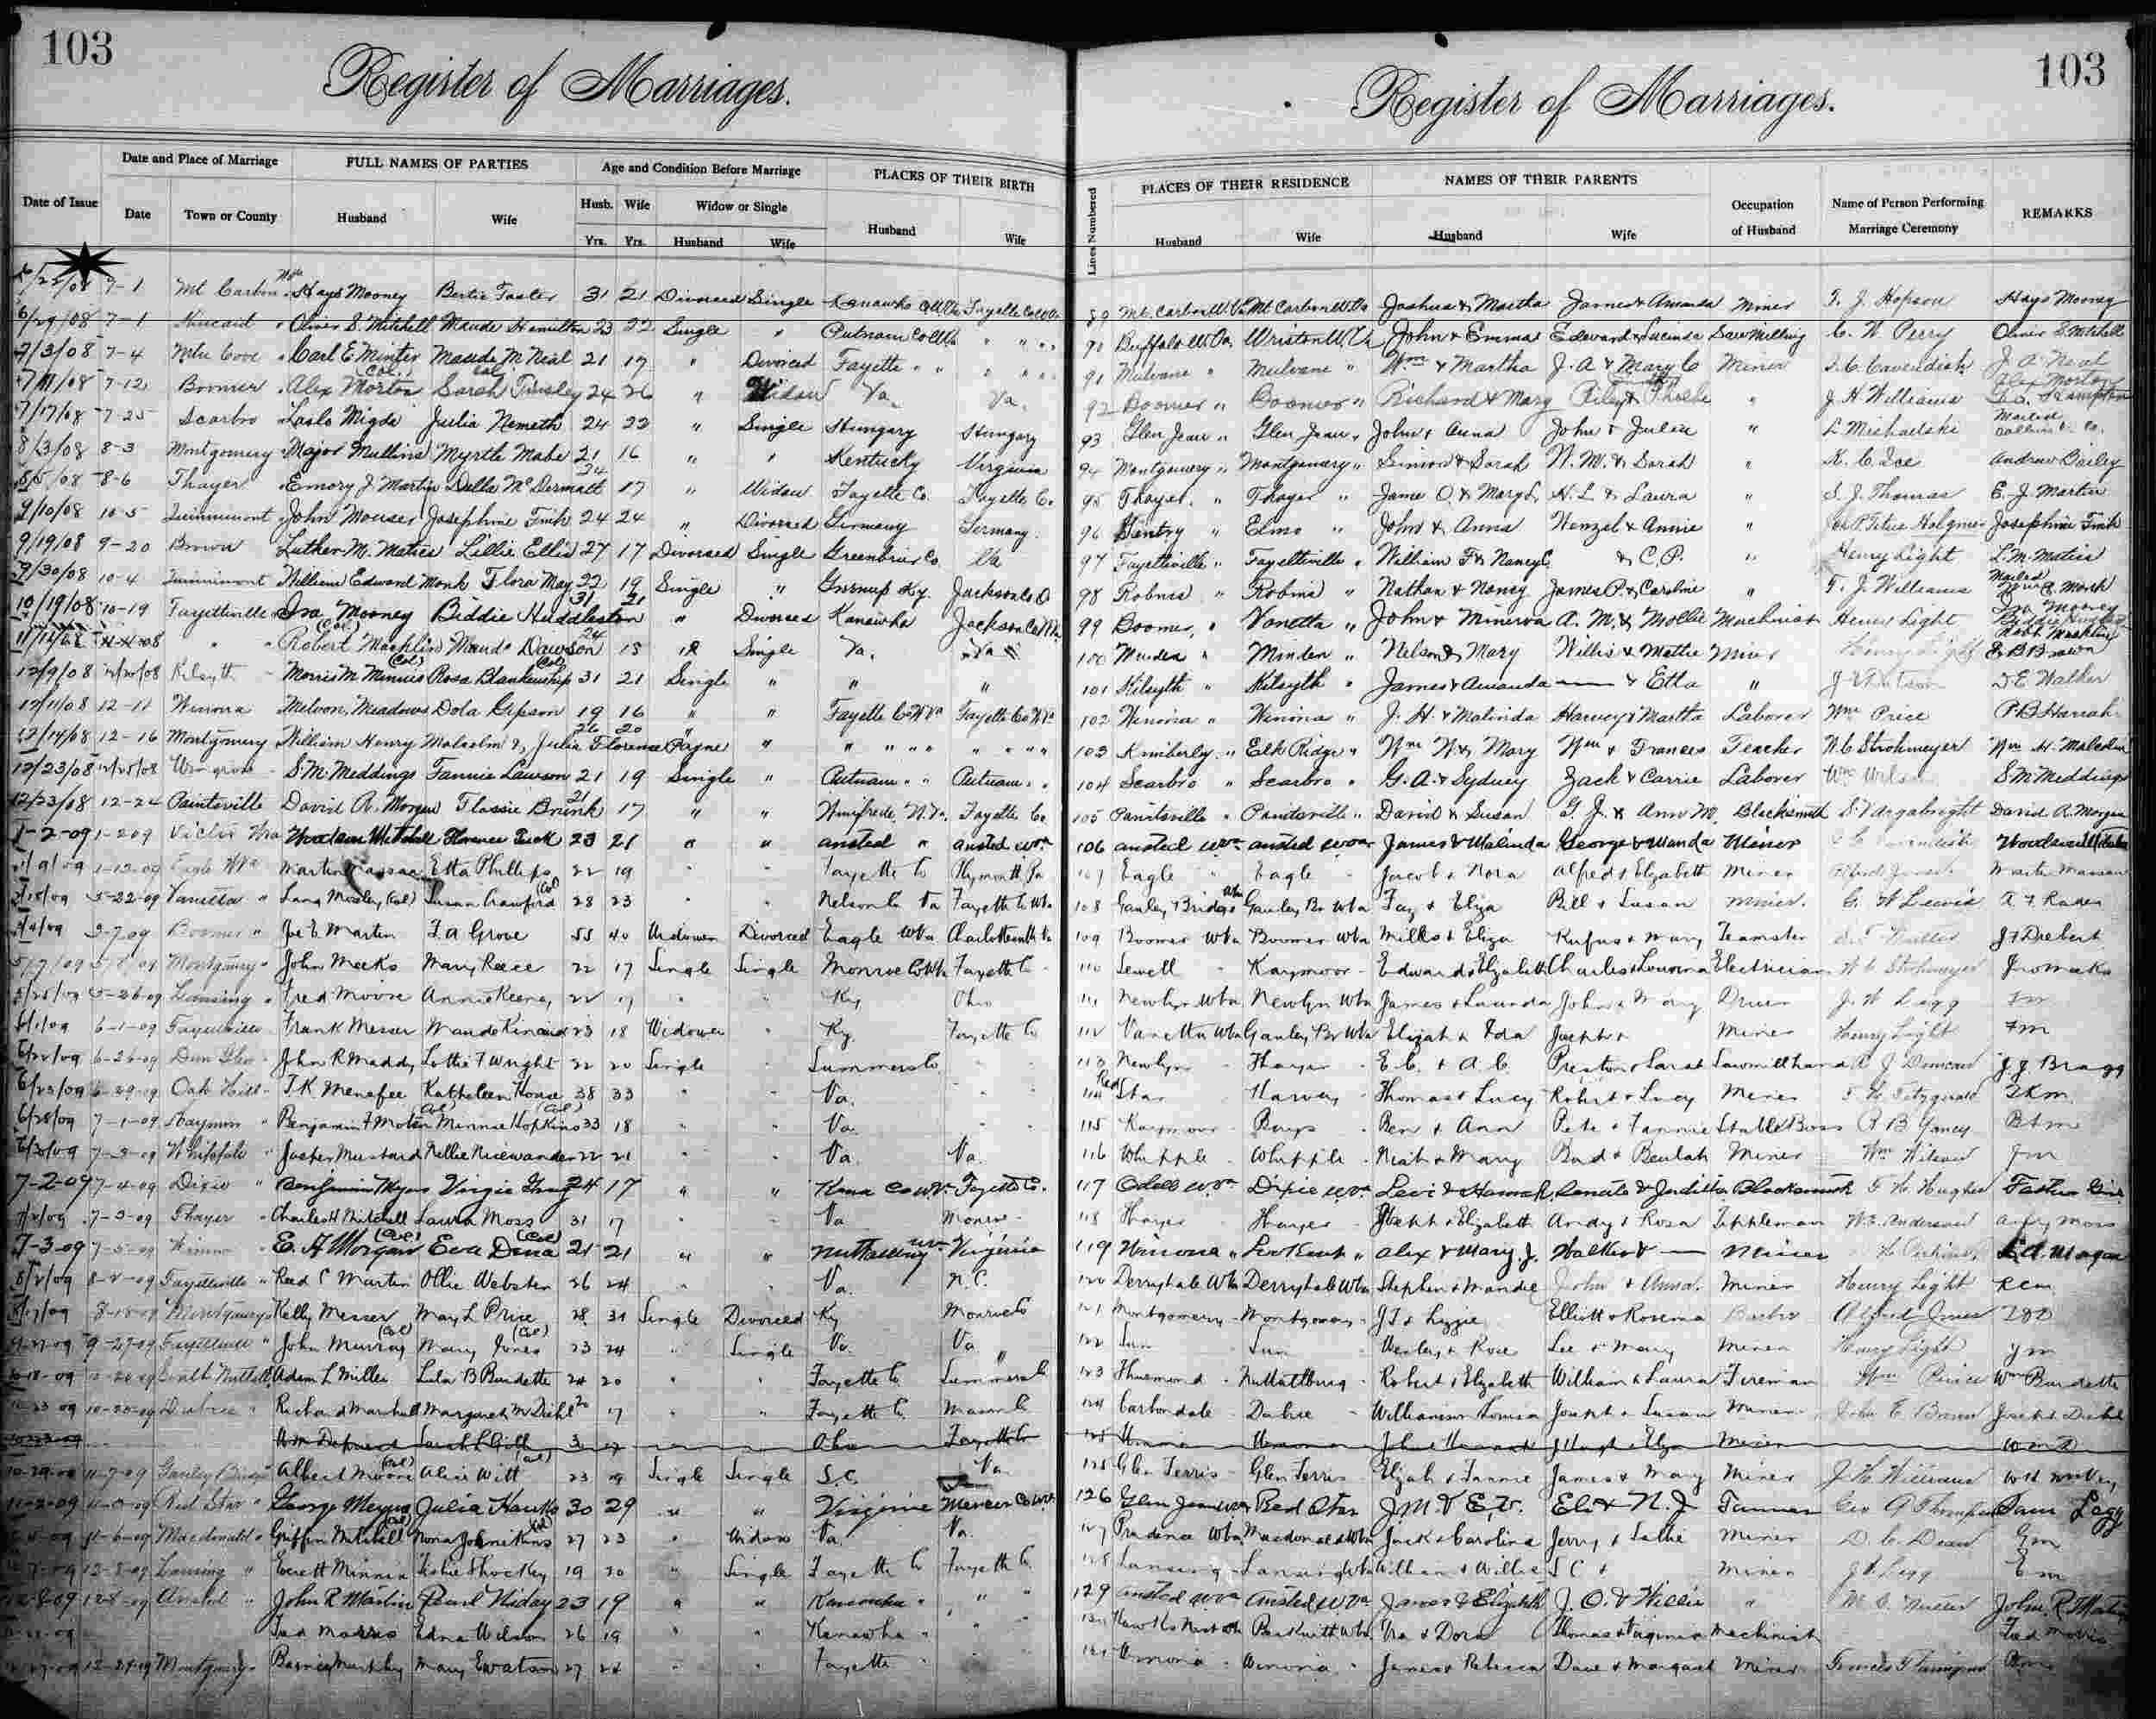 103
Register of Marriages.
Date of Issue
Date and Place of Marriage
Date
Town or County
FULL NAMES OF PARTIES
Husband
Wife
Age and Condition Before Marriage
Husb. Wife
Yrs. Yrs.
Widow or Single
Husband Wife
PLACES OF THEIR BIRTH
Husband
Wife
6/29/08 7-1 Kincaid " Oliver S. Mitchell Maude Hamilton 23 22 Single " Putnam Co W Va " " "
7/3/08 7-4 Cove " Carl E Minter Maude M Neal 21 17 " Divorced Fayette " " " " "
7/11/08 7-12 Boomer " Alex Morton (Col.) Sarah Tinsley (Col) 24 26 " Widow Va. Va.
7/17/08 7-25 Scarbro " Laslo Migdi Julia Nemeth 24 22 " Single Hungary Hungary
8/3/08 8-3 Montgomery " Major Mullins Myrtle Mabe 21 16 " " Kentucky Virginia
8/5/08 8-6 Thayer " Emory J Martin Della McDermatt 34 17 " Widow Fayette Co. Fayette Co.
9/10/08 10-5 Quinnimont " John Mouser Josephine Fink 24 24 " Divorced Germany Germany.
9/19/08 9-20 Brown Luther M. Matics Lillie Ellis 27 17 Divorced Single Greenbrier Co. Va
9/30/08 10-4 Quinnimont William Edward Monk Flora May 22 19 Single " Greenup Ky. Jackson Co O
10/19/08 10-19 Fayetteville Ira Mooney Biddie Huddleston 31 21 " Divorced Kanawha Jackson Co W Va
" " Robert Macklin (Col) Maude Dawson 24 18 Single Va. Va
12/9/08 12/20/08 Kilsyth Morris M Minnis (Col) Rosa Blankenship (Col) 31 21 Single " " "
12/11/08 12-11 Winona Melvon Meadows Dola Gipson 19 16 " " Fayette Co W Va Fayette Co W Va
12/14/08 12-16 Montgomery William Henry Malcolm & Julia Florence Payne 26 20 " " " " " " " "
12/23/08 12/25/08 S. M. Meddings Fannie Lawson 21 19 Single " Putnam " " Putnam " "
12/23/08 12-24 Paintsville David R. Morgan Flossie Brink 21 17 " " Winifrede W. Va. Fayette Co.
1-2-09 1-2-09 Victor Woodson Mitchell Florence Tuck 23 21 " " Ansted " Ansted W Va
1/9/09 1-13-09 Eagle W Va Martin Etta Phillips 22 19 " " Fayette Co Plymouth Pa
5-22-09 Vanetta " Lang Mosley (Col) Susan Crawford (Col) 28 23 " " Nelson Co Va Fayette Co W Va
Boomer " Joe E Martin F. A Grose 55 40 Widower Divorced Eagle W Va Charlottesville Va
Montgomery " John Meeks Mary Reece 22 17 Single Single Monroe Co W Va Fayette Co
5/25/09 5-26-09 Lansing " Fred Moore Annie Keeney 22 19 " " Ky Ohio
6/1/09 6-1-09 Fayetteville Frank Messer Maude Kincaid 23 18 Widower " Ky. Fayette Co
6-26-09 Dun Glen John R Maddy Lottie F Wright 22 20 Single " Summers Co " "
6/23/09 6-29-09 Oak Hill T. K Menefee Kathleen House 38 33 " " Va. " "
6/28/09 7-1-09 Kaymoor " Benjamin F Moten (Col) Minnie Hopkins (Col) 33 18 " " Va. " "
6/30/09 7-3-09 Whipple " Jasper Mustard Nellie Nicewander 22 21 " " Va. Va.
7-2-09 7-4-09 Dixie " Benjamin Myers Virgie Gray 24 17 " " Kana Co W Va. Fayette Co.
7/2/09 7-3-09 Thayer " Charles H Mitchell Laura Moss 31 17 " " Va Monroe
7-3-09 7-5-09 Winona " E. A Morgan (Col) Eva Dena (Col) 21 21 " " Nuttallburg W Va Virginia
8/2/09 8-2-09 Fayetteville " Reed C Martin Ollie Webster 26 24 " " Va. N. C.
8/17/09 8-18-09 Montgomery " Kelly Messer May L Price 28 31 Single Divorced Ky Monroe Co
9-27-09 9-27-09 Fayetteville " John Murray (Col) Mary Jones (Col) 23 24 " Single Va. Va.
10-18-09 Adam L Miller Lula B Burdette 24 20 " " Fayette Co Summers Co
10-23-09 " Richard Marshall Margaret M Diehl 20 17 " " Fayette Co Mason Co
10-29-09 11-7-09 Gauley Bridge Albert Moore (Col) Alice Witt (Col) 23 19 Single Single S.C. Va
11-2-09 Red Star " George Meyers Julia Hawks 30 29 " " Virginia Mercer Co W Va.
11-6-09 Macdonald " Griffin Mitchell (Col) Nona Johnikins (Col) 27 23 " Widow Va. Va.
12-8-09 Lansing " Everett Minnix Shockley 19 20 " Single Fayette Co Fayette Co
12-8-09 12-8-09 Ansted " John R Martin Pearl Niday 23 19 " " Kanawha " " "
Tad Morris Edna Wilson 26 19 " " Kanawha " "
12-29-09 Montgomery " Barnie Murphy Mary E Watson 27 24 " " Fayette " "
103
Register of Marriages.
Lines Numbered
PLACES OF THEIR RESIDENCE
Husband Wife
NAMES OF THEIR PARENTS
Husband Wife
Occupation
of Husband
Name of Person Performing
Marriage Ceremony
REMARKS
89 Mt. Carbon W. Va Mt Carbon W. Va Joshua & Martha James & Amanda Miner T. J. Hopson Hays Mooney
90 Buffalo W. Va. Wriston W. Va John & Emma Edward & Lucinda Saw Milling C. W. Perry Oliver S Mitchell
91 Mulvane " Mulvane " Wm & Martha J. A & Mary C Miner S. C. Cavendish J A Neal
92 Boomer " Boomer " Richard & Mary Riley & Phoebe " J. H Williams Alex Morton
93 Glen Jean " Glen Jean " John & Anna John & Julia " L. Michalski Mailed
94 Montgomery " Montgomery " Simon & Sarah N. M. & Sarah " K. C. Ice Andrew Bailey
95 Thayer. " Thayer " Jame O. & Mary L. H. L. & Laura " S. J. Thomas E. J. Martin
96 Gentry " Elmo " John & Anna Wenzel & Annie " Josephine Fink
97 Fayetteville " Fayetteville " William T & Nancy C & C. P. " Henry Light L. M. Matics
98 Robins " Robins " Nathan & Nancy James P. & Caroline " T. J. Williams Mailed
99 Boomer, " Vanetta " John & Minerva A. M. & Mollie Machinist Henry Light Ira Mooney
100 Minden " Minden " Nelson & Mary Willis & Mattie Miner Henry Light E B Brown
101 Kilsyth " Kilsyth " James & Amanda — & Etta " J Watson D E Walker
102 Winona " Winona " J. H. & Malinda Harvey & Martha Laborer Wm Price P B Harrah
103 Kimberly " Elk Ridge " Wm W. & Mary Wm & Frances Teacher W. C Strohmeyer Wm H. Malcolm
104 Scarbro " Scarbro " G. A. & Sydney Zack & Carrie Laborer Wm Wilson S M Meddings
105 Paintsville " Paintsville " David & Susan G. J. & Ann M. Blacksmith S. Vargabright David R. Morgan
106 Ansted W Va Ansted W Va James & Malinda George & Wanda Miner Woodson Mitchell
107 Eagle " Eagle " Jacob & Nora Alfred & Elizabeth Miner
108 Gauley Bridge W Va Gauley Br W Va Fay & Eliza Bill & Susan Miner. G. W Lewis A. F. Rader
109 Boomer W Va Boomer W Va Milks & Eliza Rufus & Mary Teamster
110 Sewell Kaymoor Edward & Elizabeth Charles & Louvina Electrician W. C Strohmeyer Jno Meeks
111 Newlyn W Va Newlyn W Va James & Laurinda John & Mary Driver J. W Legg FM
112 Vanetta W Va Gauley Br W Va Elizah & Ida Joseph & Miner Henry Light FM
113 Newlyn Thayer E. C. & A. C. Preston & Sarah Sawmill hand A J Duncan J. J. Bragg
114 Red Star Harvey Thomas & Lucy Robert & Lucy Miner T. H. Fitzgerald T.K.M.
115 Kaymoor Bays Ben & Ann Pete & Fannie Stable Boss R B Yancy B F M
116 Whipple Whipple Mary Bud & Beulah Miner Wm Wilson JM
117 Odell W Va Dixie W Va Levi & Hannah & Juditha Blacksmith T. H. Hughes
118 Thayer Thayer Joseph & Elizabeth Andy & Rosa Tippleman W. Anderson Andy Moss
119 Winona " Lookout " Alex & Mary J. Walker & — Miner E. A. Morgan
120 Derryhale W Va Derryhale W Va Stephen & Mandie John & Anna. Miner Henry Light RCM
121 Montgomery Montgomery J T & Lizzie Elliott & Rosena Barber Alfred Jones
122 Sun Sun Wesley & Rose Lee & Mary Miner Henry Light JM
123 Thurmond Nuttallburg Robert & Elizabeth William & Laura Fireman Wm Price Wm Burdette
124 Carbondale Dubree Louisa Joseph & Susan Miner John E Brown Joseph Diehl
125 Glen Ferris Glen Ferris Elijah & Fannie James & Mary Miner J. H. Williams
126 Glen Jean W Va Red Star J. M. & E. V. Eli & N. J Farmer Geo A Thompson Sam Legg
127 Prudence W Va Macdonald W Va Jack & Carolina Jerry & Sallie Miner D. C. Dean GM
128 Lansing Lansing W Va William & Willie S C & Miner J W Legg EM
129 Ansted W Va Ansted W Va James & Elizabeth J. O. & Willie " John R Martin
130 Hawks Nest W Va Ira & Dora Thomas & Virginia Machinist Tad Morris
131 Winona Winona James & Rebecca Dave & Margaret Miner